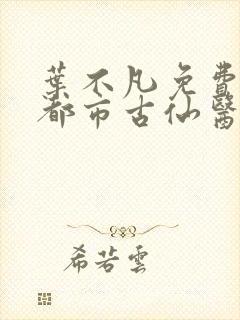 葉不凡免費
都市古仙醫
希若雲